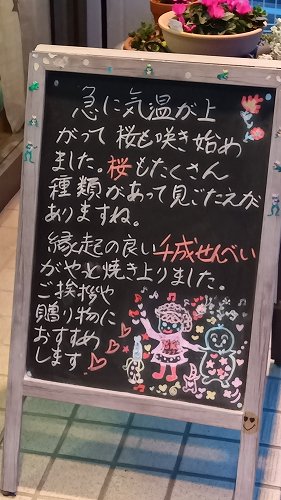 急に気温が上
がって桜も咲き始め
ました。桜もたくさん
種類があって見ごたえが
ありますね。
縁起の良い千成せんべい
がやっと焼き上りました。
ご挨拶や
贈り物に
おすすめ
します